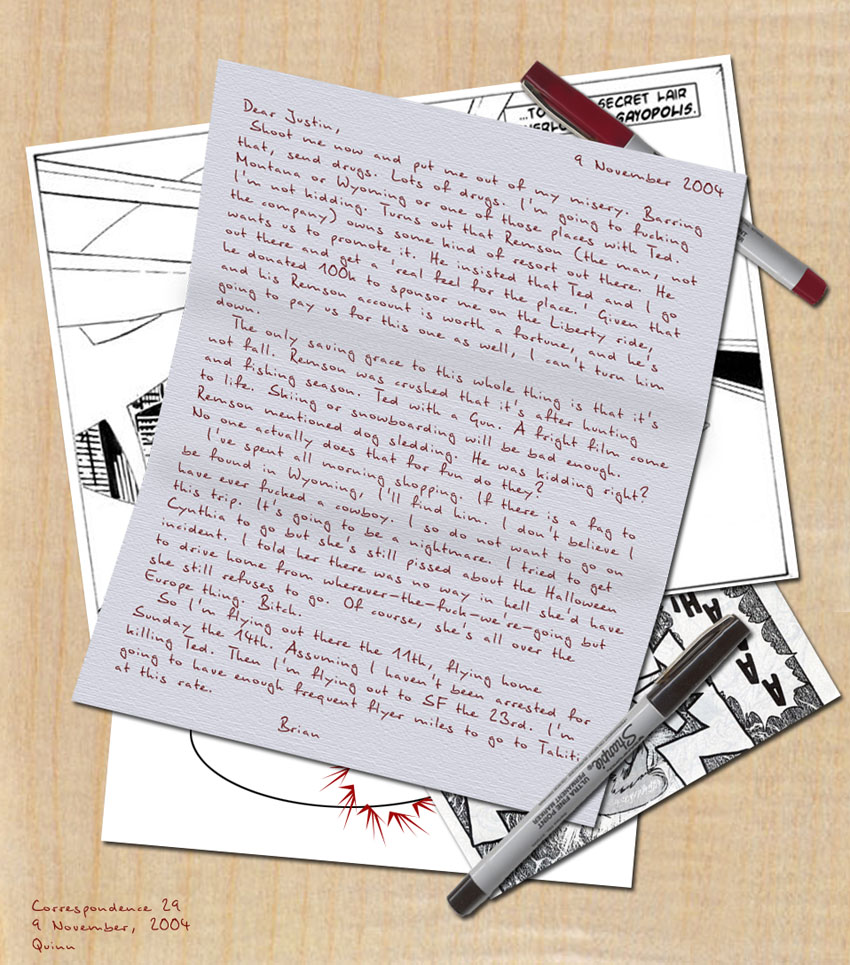 ...TO SECRET LAIR
GAYOPOLIS.
9 November 2004
Dear Justin,
Shoot me now and put me out of my misery. Barring
that, send drugs. Lots of drugs. I'm going to fucking
Montana or Wyoming or one of those places with Ted.
I'm not kidding. Turns out that Remson (the man, not
the company) owns some kind of resort out there. He
wants us to promote it. He insisted that Ted and I go
out there and get a real feel for the place.' Given that
he donated 100k to sponsor me on the Liberty ride,
and his Remson account is worth a fortune, and he's
going to pay us for this one as well, I can't turn him
down.
The only saving grace to this whole thing is that it's
not fall. Remson was crushed that it's after hunting
and fishing season. Ted with a Gun. A fright film come
to life. Skiing or snowboarding will be bad enough.
Remson mentioned dog sledding. He was kidding right?
No one actually does that for fun do they?
I've spent all morning shopping. If there is a fag to
be found in Wyoming, I'll find him. I don't believe I
have ever fucked a cowboy. I so do not want to go on
this trip. It's going to be a nightmare. I tried to get
Cynthia to go but she's still pissed about the Halloween
incident. I told her there was no way in hell she'd have
to drive home from wherever-the-fuck-we're-going but
she still refuses to go. Of course, she's all over the
Europe thing. Bitch.
So I'm flying out there the 11th, flying home
Sunday the 14th. Assuming I haven't been arrested for
killing Ted. Then I'm flying out to SF the 23rd. I'm
going to have enough frequent flyer miles to go to Tahiti
at this rate.
Brian
Sharpie
ULTRA FINE POINT
PERMANENT MARKER
Correspondence 29
9 November, 2004
Quinn